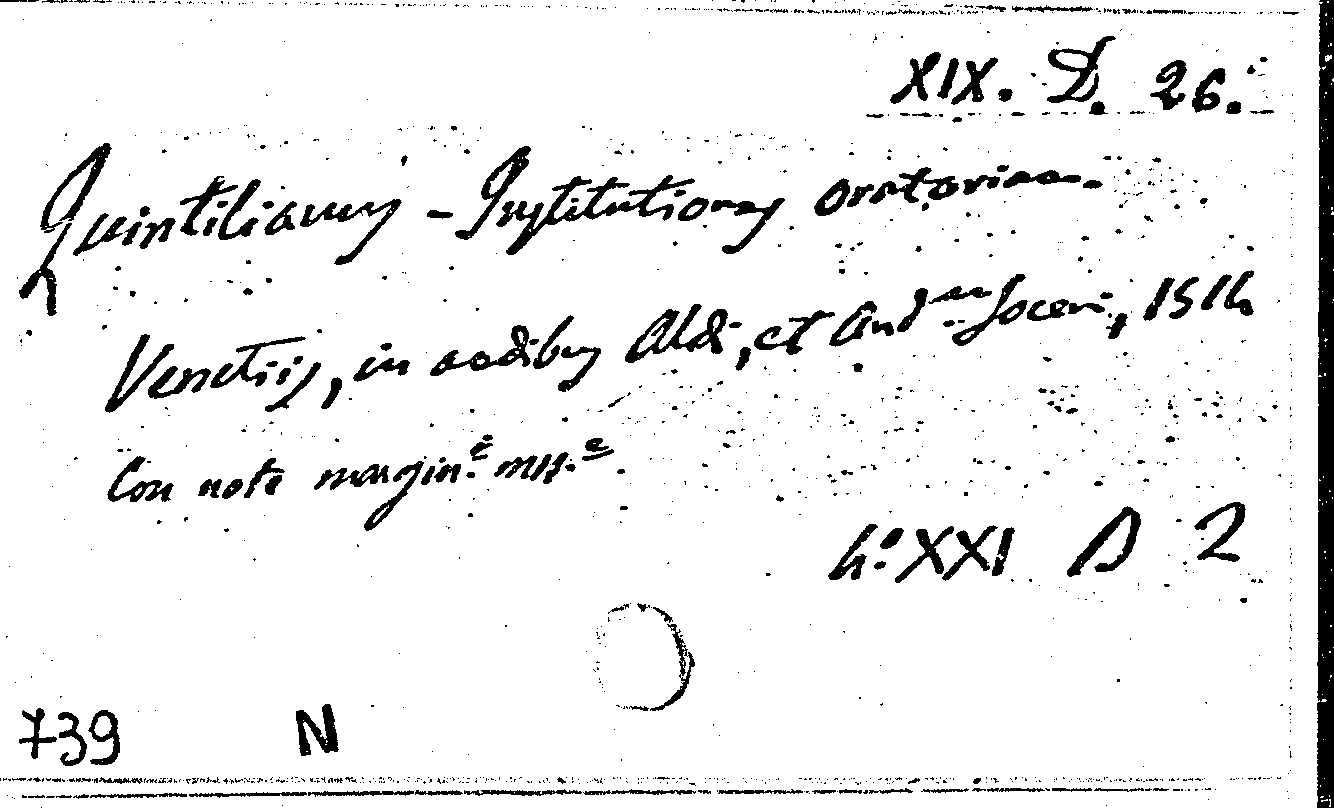 XIX. D. 26.
Quintilianus - Institutiones oratoriae.
Venetiis, in aedibus Aldi, et And.ae Soceri, 1514
Con note margin.e mss.e
4.o XXI D 2
739 N